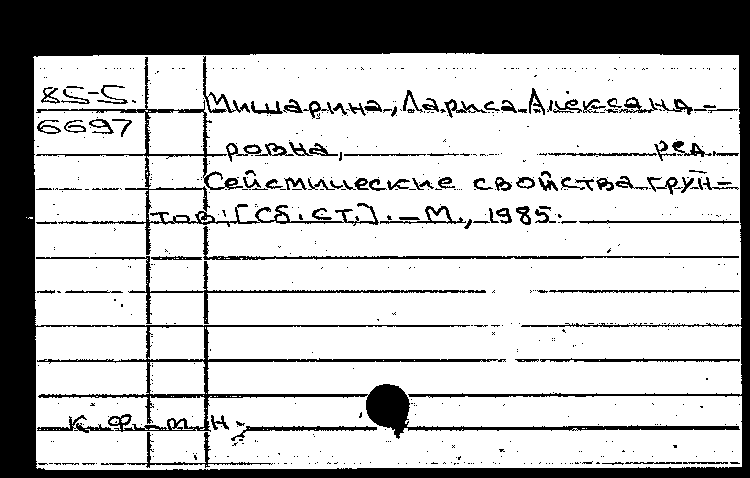 85-5. Мишарина, Лариса Александ-
6697
ровна, ред.
Сейсмические свойства грун-
тов: [Сб. ст.]. – М., 1985.
к. ф.-м. н.